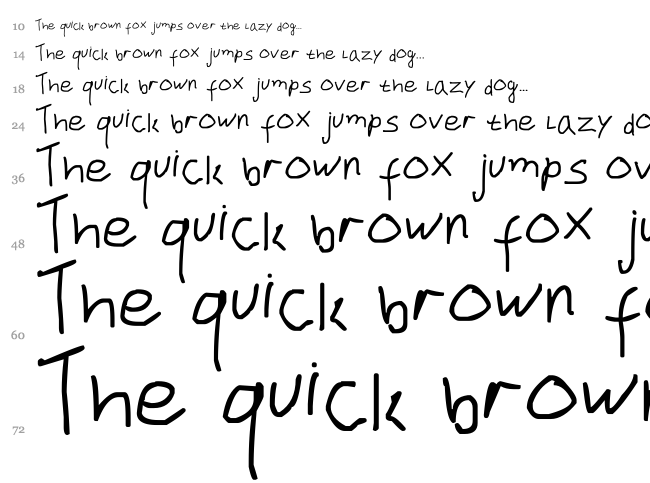 10 The quick brown fox jumps over the Lazy dog...
14 The quick brown fox jumps over the Lazy dog...
18 The quick brown fox jumps over the Lazy dog...
24 The quick brown fox jumps over the Lazy do
36 The quick brown fox jumps ov
48 The quick brown fox ju
60 The quick brown fo
72 The quick brown